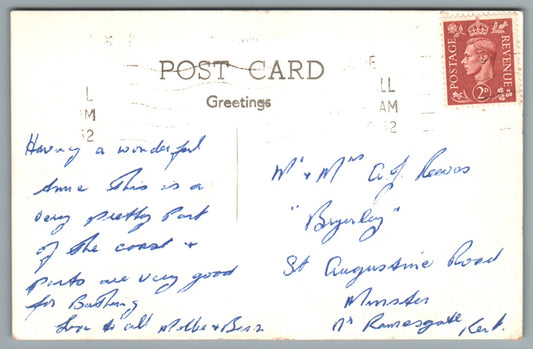 POST CARD
Greetings
POSTAGE REVENUE
2D
LL
AM
52
Having a wonderful
time This is a
very pretty part
of the coast &
parts are very good
for Bathing
Love to all
Mr & Mrs A. J. Reeves
"Byerley"
St Augustine Road
Minster
Nr Ramesgate Kent.